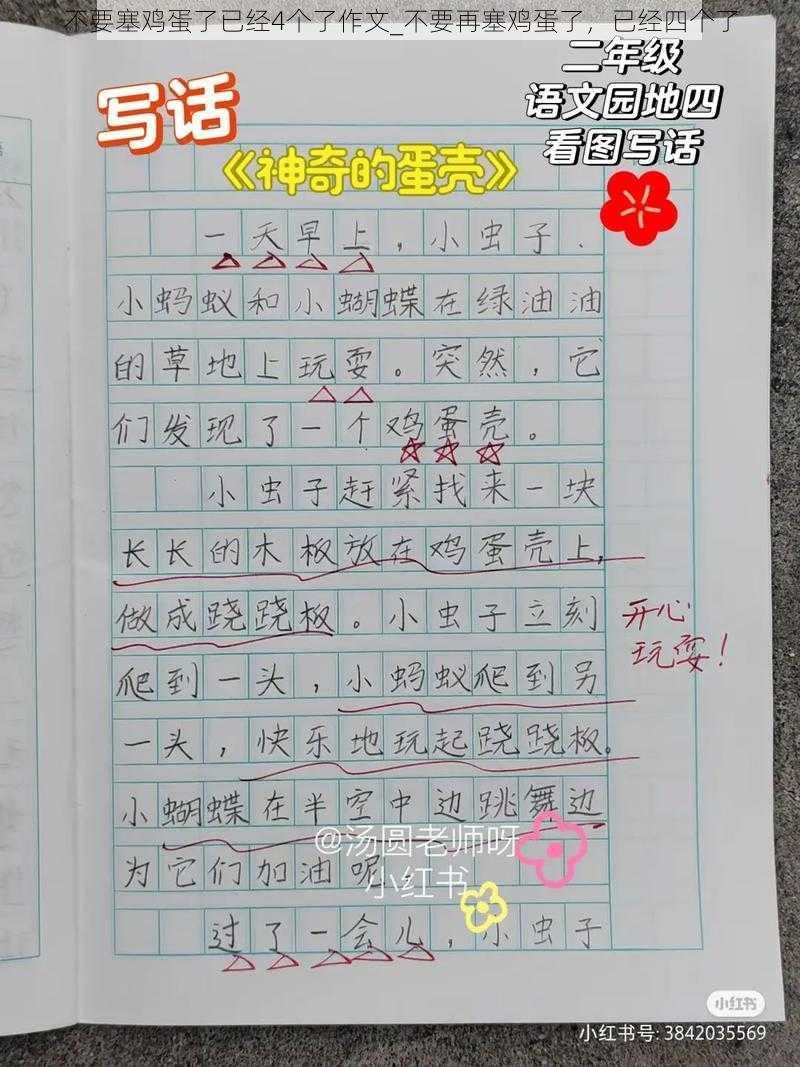 不要塞鸡蛋了已经4个了作文_不要再塞鸡蛋了，已经四个了
二年级
语文园地四
看图写话
写话
《神奇的蛋壳》
一天早上，小虫子、
小蚂蚁和小蝴蝶在绿油油
的草地上玩耍。突然，它
们发现了一个鸡蛋壳。
小虫子赶紧找来一块
长长的木板放在鸡蛋壳上，
做成跷跷板。小虫子立刻
爬到一头，小蚂蚁爬到另
一头，快乐地玩起跷跷板。
小蝴蝶在半空中边跳舞边
为它们加油呢
过了一会儿，小虫子
开心
玩耍！
@汤圆老师呀
小红书
小红书
小红书号: 3842035569